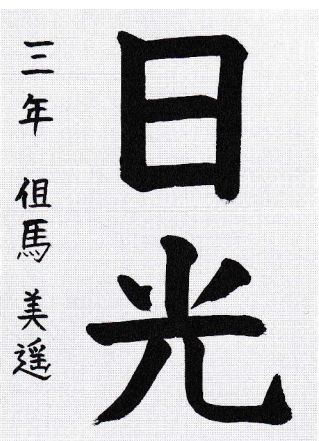 日光
三年 但馬 美遥